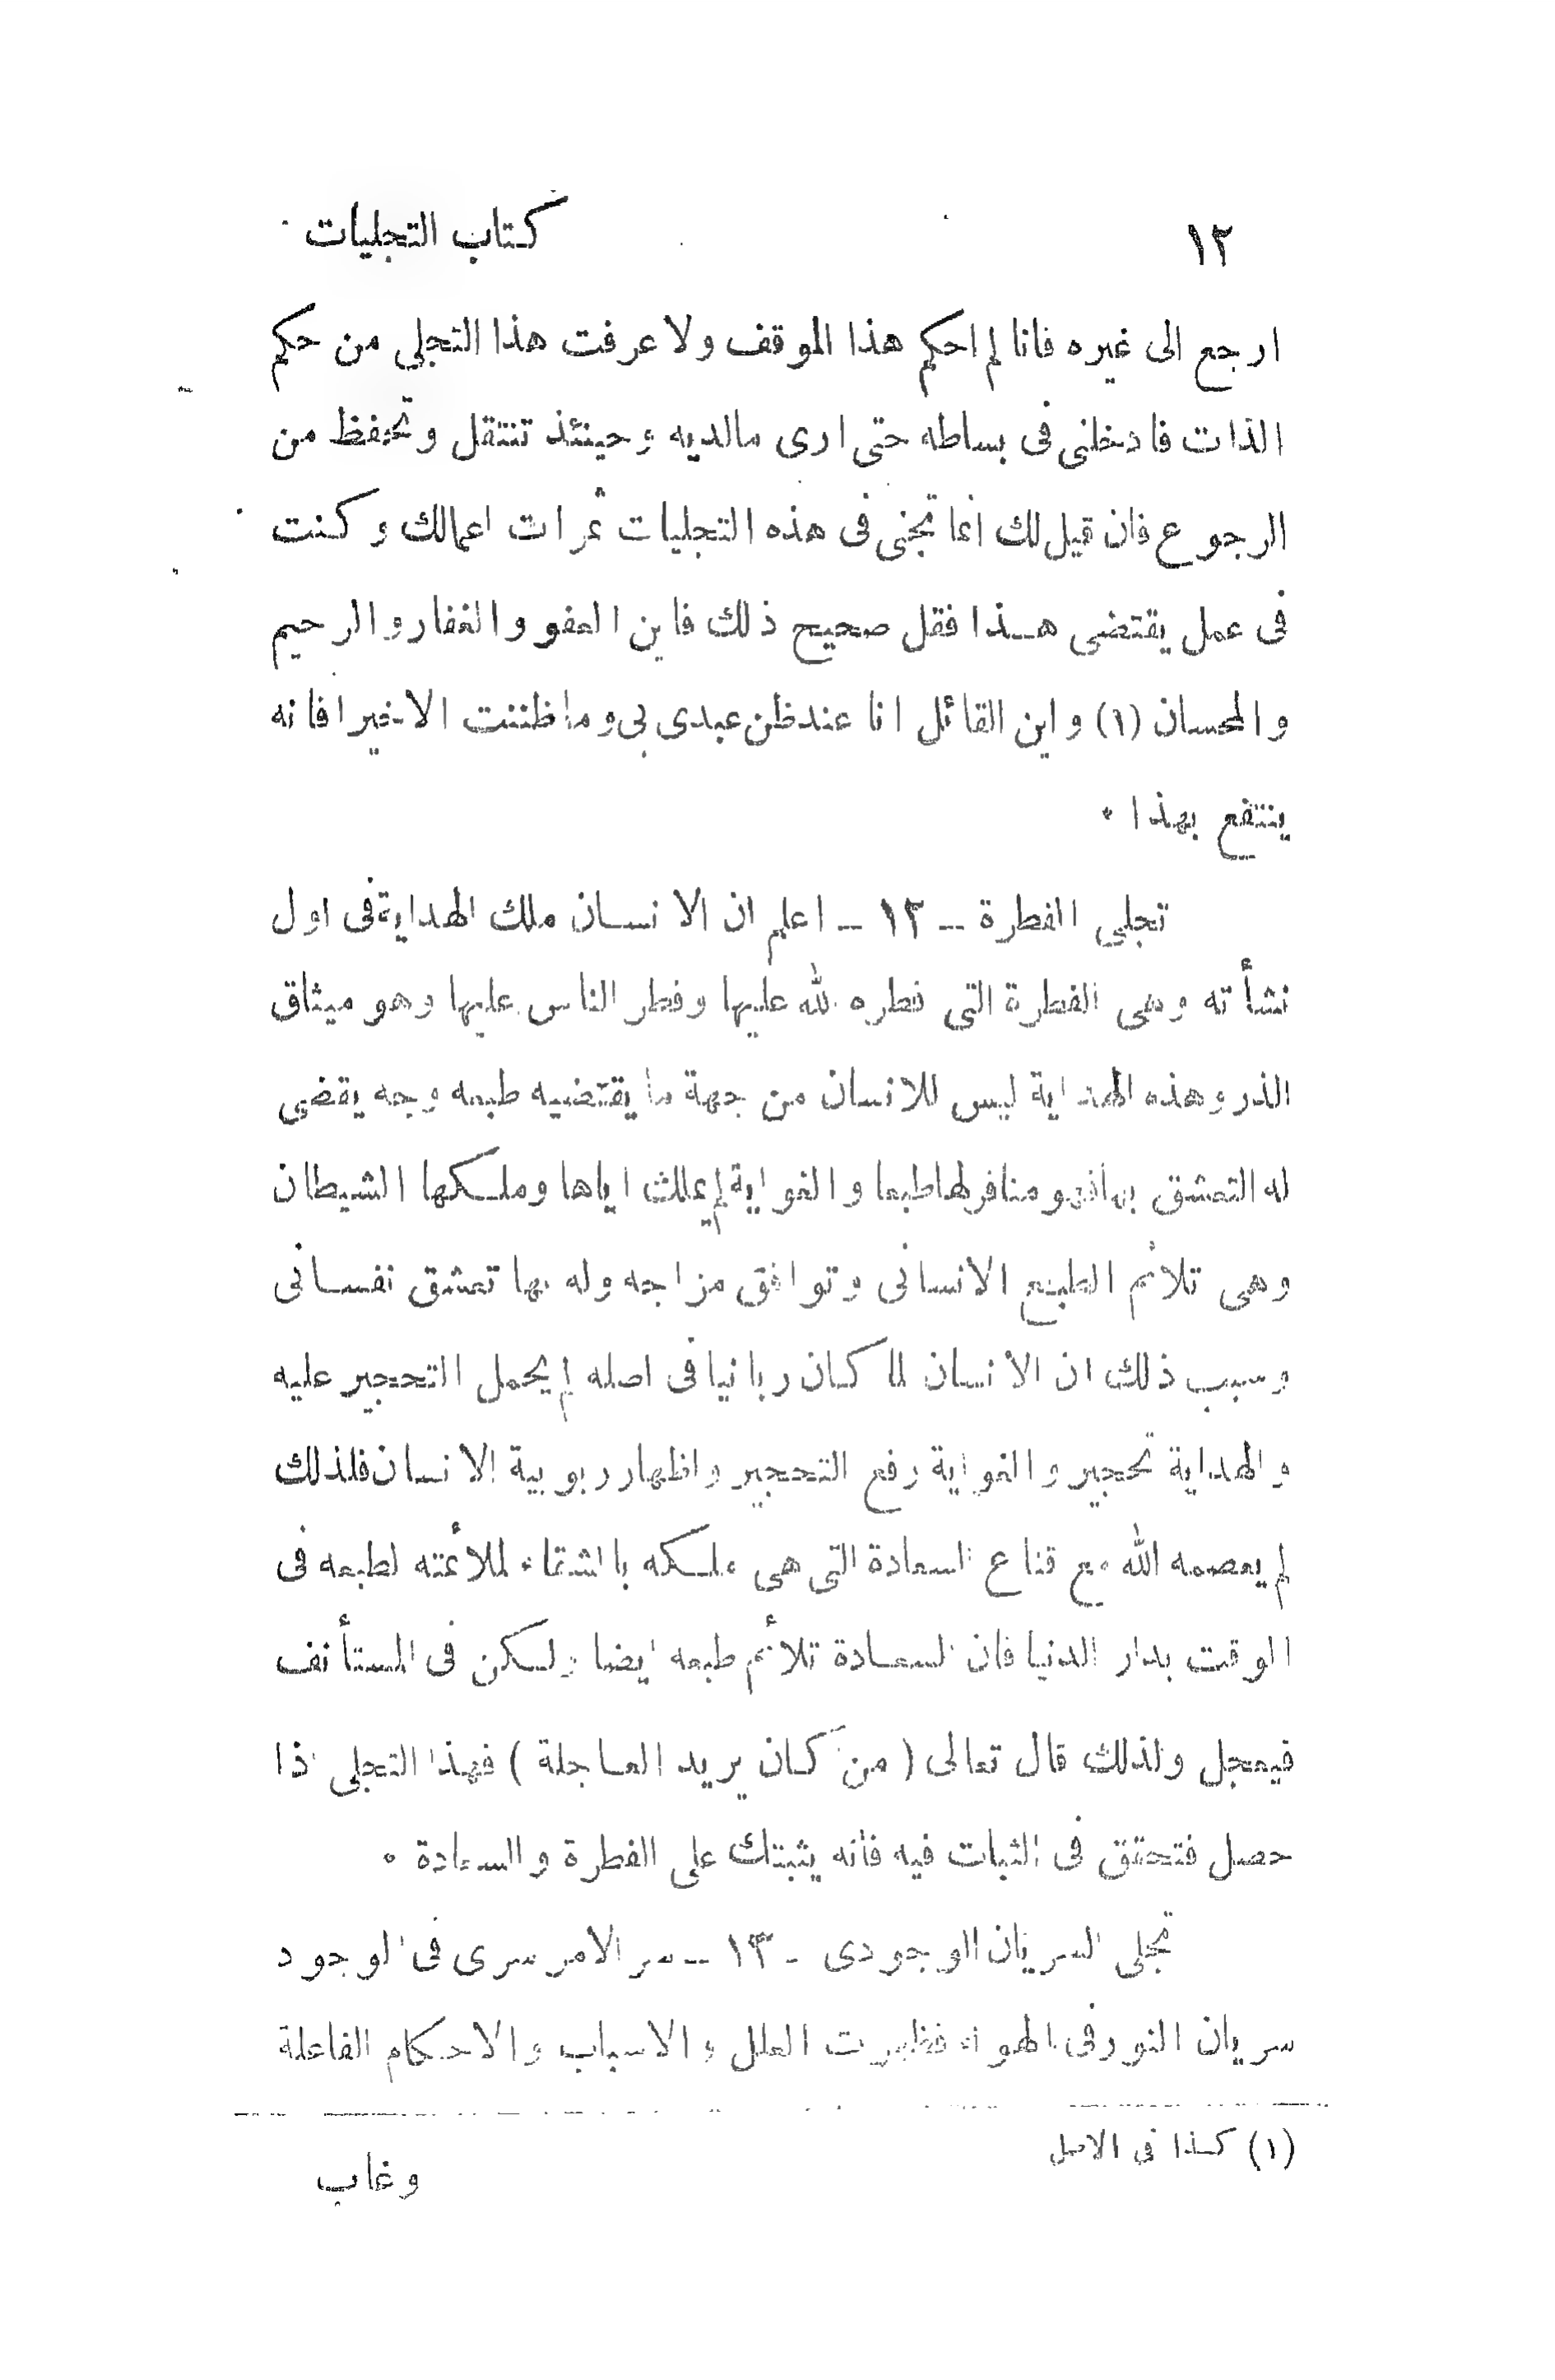 ١٢ كتاب التجليات
ارجع الى غيره فانا لم احكم هذا الموقف ولا عرفت هذا التجلي من حكم
الذات فادخلنى فى بساطه حتى ارى مالديه وحينئذ تنتقل وتحفظ من
الرجوع فان قيل لك انما تجنى فى هذه التجليات ثمرات اعمالك وكنت
فى عمل يقتضى هـذا فقل صحيح ذلك فاين العفو والغفار والرحيم
والمحسان (١) واين القائل انا عند ظن عبدى بى وما ظننت الا خيرا فانه
ينتفع بهذا ٠
تجلى الفطرة ــ ١٢ ــ اعلم ان الانسان ملك الهداية فى اول
نشأته وهى الفطرة التى فطره الله عليها وفطر الناس عليها وهو ميثاق
الذر وهذه الهداية ليس للانسان من جهة ما يقتضيه طبعه وجه يقضى
له التعشق بها فهو منافر لها طبعا والغواية لم يملك اياها وملـكها الشيطان
وهى تلائم الطبع الانسانى وتوافق مزاجه وله بها تعشق نفسانى
وسبب ذلك ان الانسان لما كان ربانيا فى اصله لم يحمل التحجير عليه
والهداية تحجير والغواية رفع التحجير واظهار ربوبية الانسان فلذلك
لم يعصمه الله مع قناع السعادة التى هى ملـكه بالشقاء لملائمته لطبعه فى
الوقت بدار الدنيا فان السعادة تلائم طبعه ايضا ولـكن فى المستأنف
فيعجل ولذلك قال تعالى ( من كان يريد العاجلة ) فهذا التجلى اذا
حصل فتحقق فى الثبات فيه فانه يثبتك على الفطرة والسعادة ٠
تجلى السريان الوجودى ـ ١٣ ــ سر الامر سرى فى الوجود
سريان النور فى الهواء فظهرت العلل والاسباب والاحكام الفاعلة
(١) كـذا فى الاصل
وغاب